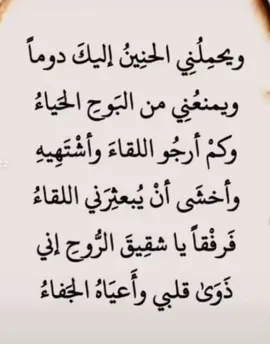 ويحمِلُنِي الحنِينُ إليكَ دوماً
ويمنعُنِي من البَوحِ الحَياءُ
وكمْ أرجُو اللقاءَ وأشْتَهِيهِ
وأخشَى أنْ يُبعثِرَني اللقاءُ
فَرِفْقاً يا شقِيقَ الرُّوحِ إني
ذَوَىٰ قلبي وأَعيَاهُ الجفاءُ